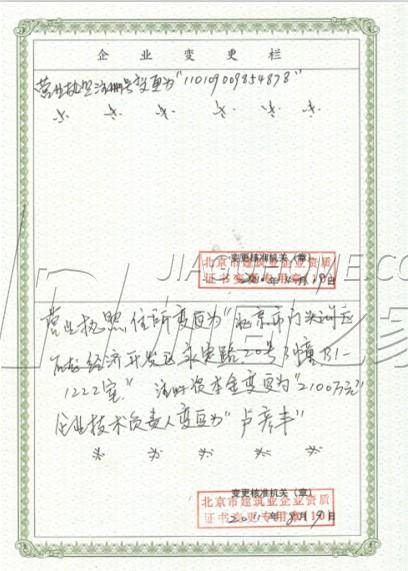 企业变更栏
营业执照注册号变更为"110109009854878"
变更核准机关（章）
北京市建筑业企业资质
证书变更专用章
年 月 19日
JIAGUHOME.CO
固之家
营业执照住所变更为"北京市门头沟区
石龙经济开发区永安路20号3幢B1-
1222室" 注册资本金变更为"2100万元"
企业技术负责人变更为"卢彦丰"
变更核准机关（章）
北京市建筑业企业资质
证书变更专用章(10)
2011年8月19日